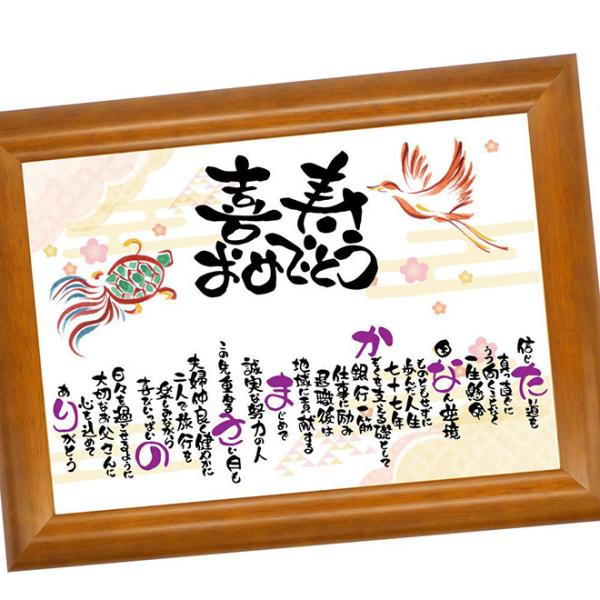 喜寿
おめでとう
信じた道を
真っ直ぐに
うつ向くことなく
一生懸命
困なな逆境
ものともせずに
歩んだ人生
七十七年
かぞくを支える礎として
銀行一筋
仕事に励み
退職後は
地域に貢献する
まじめで
誠実な努力の人
この先重ねるさい月も
夫婦仲良く健やかに
二人で旅行を
楽しみながら
喜びいっぱいの
日々を過ごせますように
大切なお父さんに
心を込めて
ありがとう